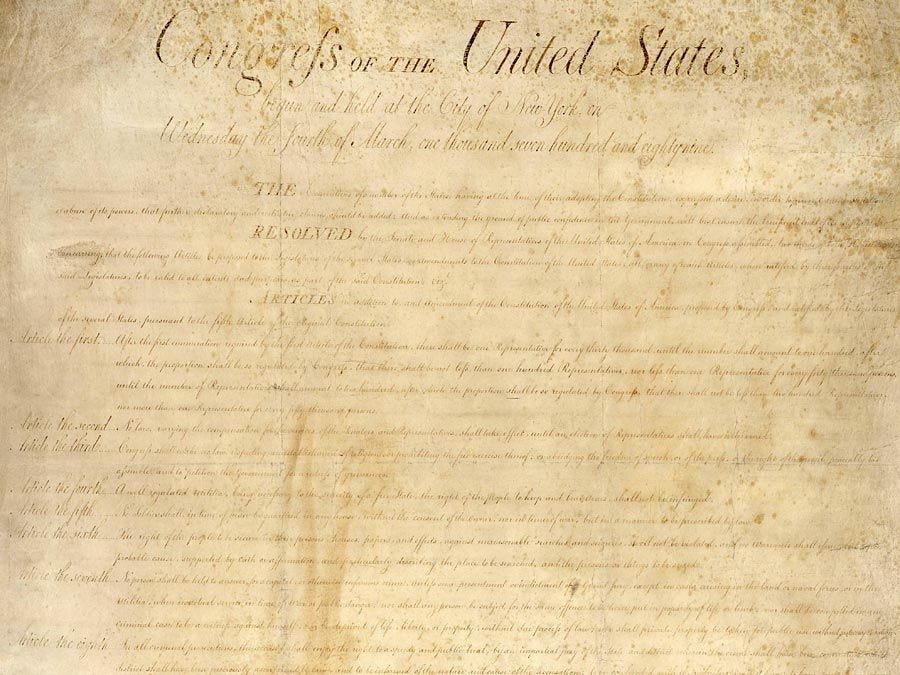 Congress OF THE United States,
begun and held at the City of New York, on
Wednesday the fourth of March, one thousand seven hundred and eighty nine.
THE Conventions of a number of the States, having at the time of their adopting the Constitution, expressed a desire, in order to prevent
abuse of its powers, that further declaratory and restrictive clauses should be added: And as extending the ground of public confidence in the Government, will best ensure the
RESOLVED by the Senate and House of Representatives of the United States of America, in Congress assembled, two thirds of both Houses
concurring, that the following Articles be proposed to the Legislatures of the several States, as amendments to the Constitution of the United States, all, or any of which Articles, when ratified by three fourths of the
said Legislatures, to be valid to all intents and purposes, as part of the said Constitution; viz.
ARTICLES in addition to, and Amendment of the Constitution of the United States of America, proposed by Congress, and ratified by the Legislatures
of the several States, pursuant to the fifth Article of the original Constitution.
Article the first. After the first enumeration required by the first Article of the Constitution, there shall be one Representative for every thirty thousand, until the number shall amount to one hundred, after
which, the proportion shall be so regulated by Congress, that there shall be not less than one hundred Representatives, nor less than one Representative for every forty thousand persons,
until the number of Representatives shall amount to two hundred, after which the proportion shall be so regulated by Congress, that there shall not be less than two hundred Representatives,
nor more than one Representative for every fifty thousand persons.
Article the second. No law, varying the compensation for the services of the Senators and Representatives, shall take effect, until an election of Representatives shall have intervened.
Article the third. Congress shall make no law respecting an establishment of religion, or prohibiting the free exercise thereof; or abridging the freedom of speech, or of the press; or the right of the people peaceably to
assemble, and to petition the Government for a redress of grievances.
Article the fourth. A well regulated Militia, being necessary to the security of a free State, the right of the people to keep and bear Arms, shall not be infringed.
Article the fifth. No Soldier shall, in time of peace be quartered in any house, without the consent of the Owner, nor in time of war, but in a manner to be prescribed by law.
Article the sixth. The right of the people to be secure in their persons, houses, papers, and effects, against unreasonable searches and seizures, shall not be violated, and no Warrants shall issue, but upon
probable cause, supported by Oath or affirmation, and particularly describing the place to be searched, and the persons or things to be seized.
Article the seventh. No person shall be held to answer for a capital, or otherwise infamous crime, unless on a presentment or indictment of a Grand Jury, except in cases arising in the land or naval forces, or in the
Militia, when in actual service in time of War or public danger; nor shall any person be subject for the same offence to be twice put in jeopardy of life or limb; nor shall be compelled in any
criminal case to be a witness against himself, nor be deprived of life, liberty, or property, without due process of law; nor shall private property be taken for public use without just compensation.
Article the eighth. In all criminal prosecutions, the accused shall enjoy the right to a speedy and public trial, by an impartial Jury of the State and district wherein the crime shall have been committed, which
district shall have been previously ascertained by law, and to be informed of the nature and cause of the accusation;